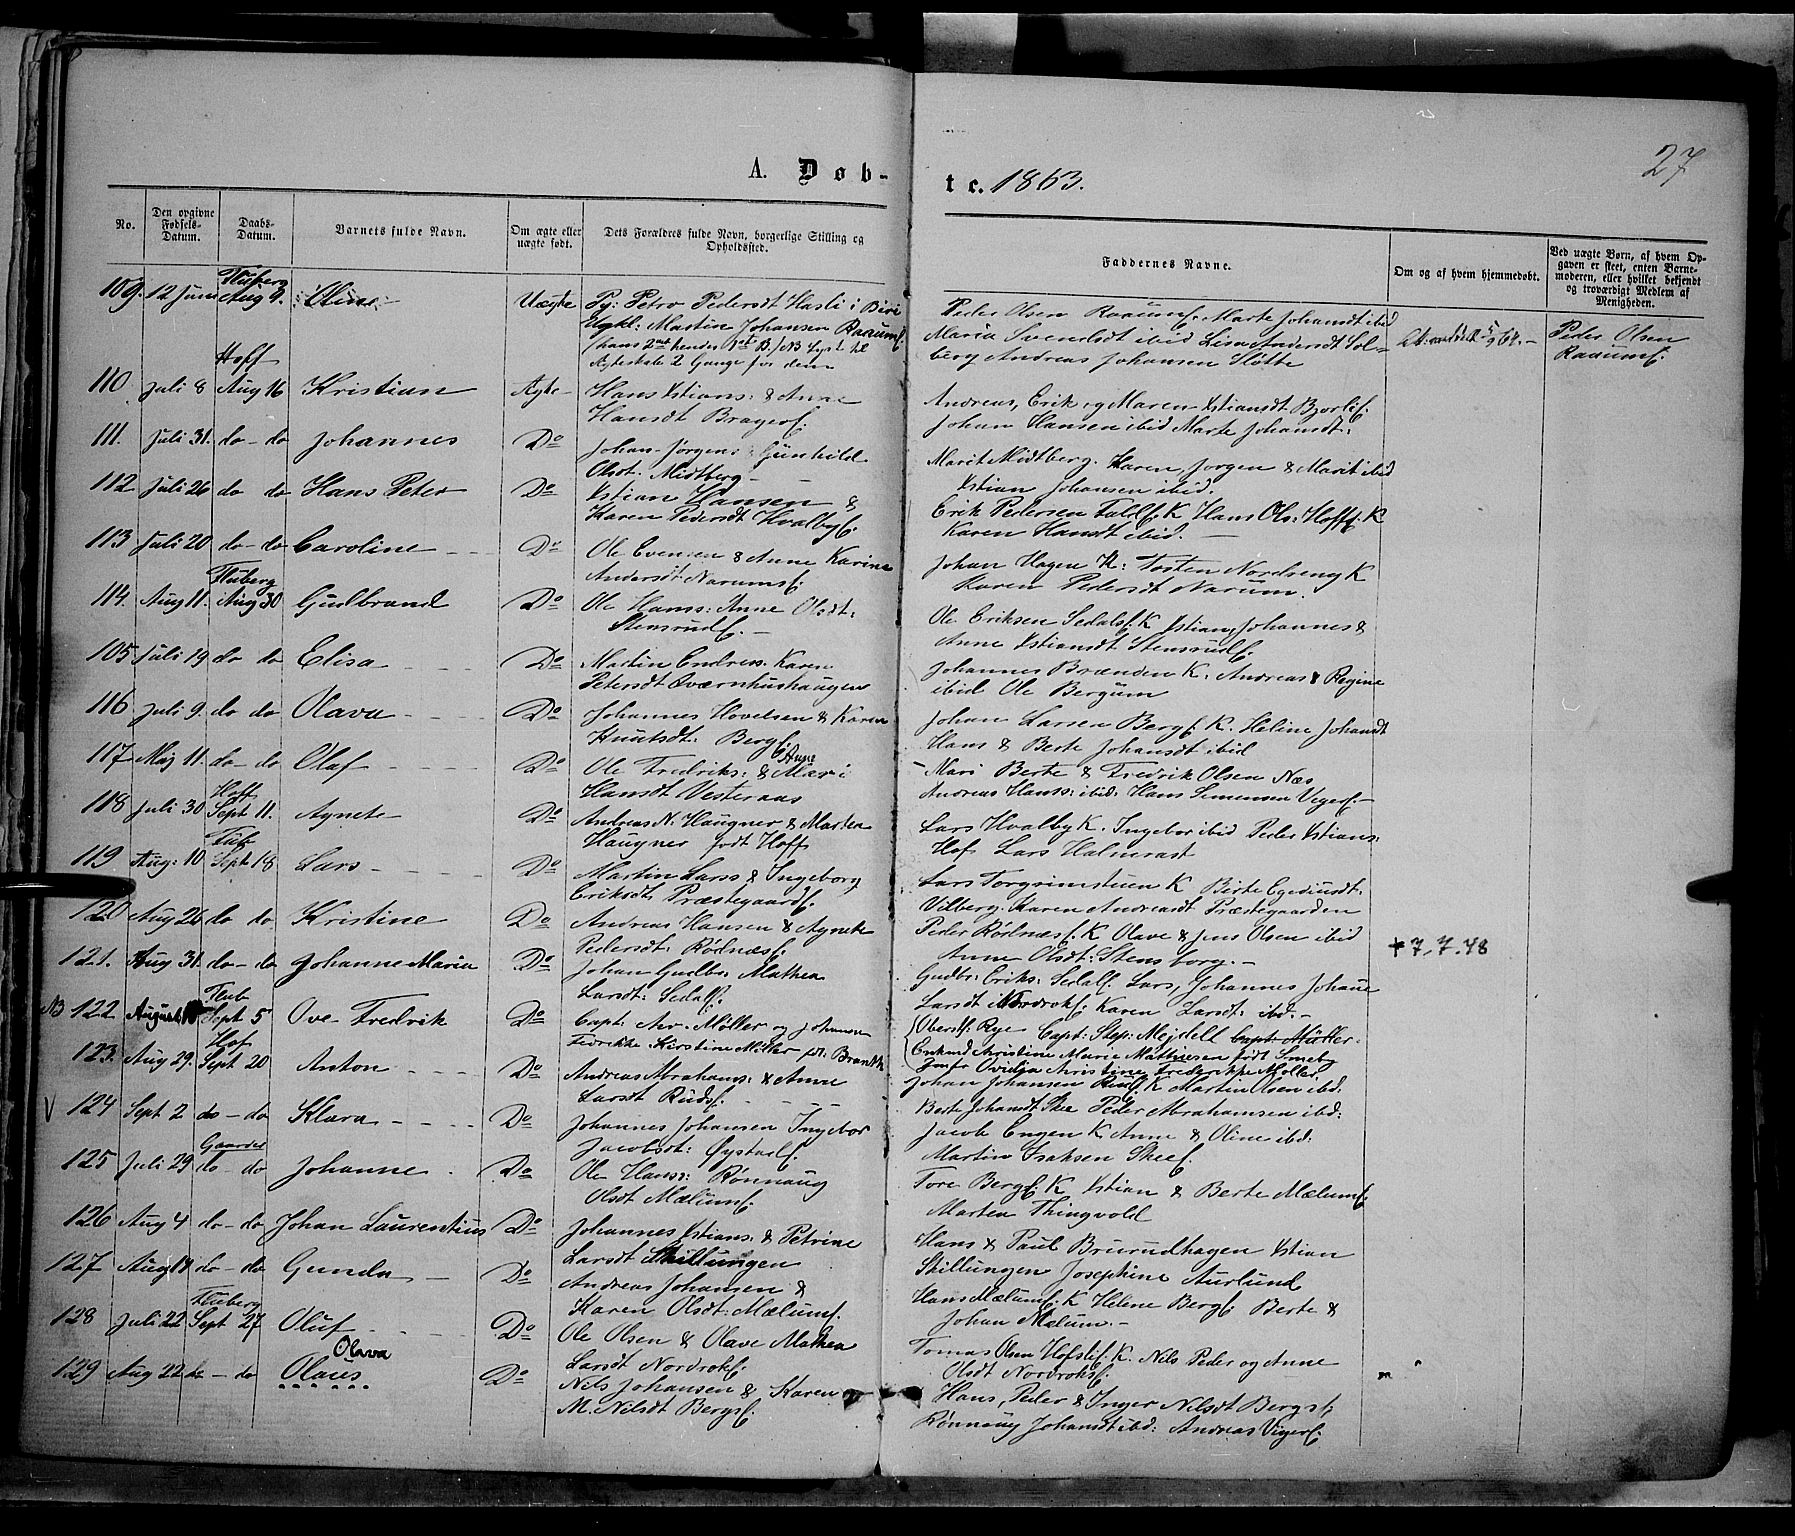 27
A. Døb-
te. 1863.
No.
Den opgivne Fødsels-Datum.
Daabs-Datum.
Barnets fulde Navn.
Om ægte eller uægte født.
Dets Forældres fulde Navn, borgerlige Stilling og Opholdssted.
Faddernes Navne.
Om og af hvem hjemmedøbt.
Ved uægte Børn, af hvem Opgaven er skeet, enten Barnemoderen, eller hvilket bekjendt og troværdigt Medlem af Menigheden.
Fluberg
109. 12 Juni Aug 9. Oline Uægte Pg: Petro Pedersdt Hasli i Biri
Ugkl: Martin Johansen Raaumf.
hans 2det hendes 1ste B. / NB Lyst til
Ægteskab 2 Gange for dem
Peder Olsen Raaumf. Marte Johansdt ibid
Maria Svendsdt ibid Lisa Andersdt Sol-
berg Andreas Johansen Sløtte
Peder Olsen
Raaumf.
Hoff
110 Juli 8 Aug 16 Kristian Ægte Hans Kstians: & Anne
Hansdt Bragerf.
Andreas, Erik og Maren Kstiansdt Bjorlif.
Johan Hansen ibid Marte Johansdt:
111. Juli 31. do-do Johannes Do Johan Jørgens: Gunhild
Olsdt. Midtberg
Marit Midtberg. Karen, Jørgen & Marit ibid
Kstian Johansen ibid.
112 Juli 26 do do Hans Peter Do Kstian Hansen &
Karen Pedersdt Hvalbyf.
Erik Pedersen Faldf. K Hans Ols: Hofff. K
Karen Hansdt ibid.
113 Juli 20 do-do Caroline Do Ole Evensen & Anne Karine
Andersdt Narumsf.
Johan Hagen K: Tosten Nordseng K
Karen Pedersdt Narum.
Fluberg
114. Aug 11. Aug 30 Gulbrand Do Ole Hanss: Anne Olsdt:
Stensrudf.
Ole Eriksen Sedalsf. K Kstian, Johannes &
Anne Kstiansdt Stensrudf.
105 Juli 19 do do Elisa Do Martin Endress. Karen
Petersdt Qværnhushaugen
Johannes Brænden K. Andreas & Regine
ibid Ole Bergum
116 Juli 9. do do Olava Do Johannes Hovelsen & Karen
Knutsdt: Bergf.
Johan Larsen Bergf. K. Heline Johansdt
Hans & Berte Johansdt ibid
117 Maj 11. do-do Olaf Do Ole Fredriks: & Mari
Hansdt Vesteraas
Mari Berte & Fredrik Olsen Næs
Andreas Hanss: ibid: Hans Simensen Vegerf.
Hoff
118 Juli 30 Sept 11. Agnete Do Andreas N. Haugner & Martea
Haugner født Hoff
Lars Hvalby K. Ingebor ibid Peder Kstians:
Hof Lars Halmrast
Flub
119 Aug: 10 Sept 18 Lars Do Martin Larss & Ingeborg
Eriksdt Præstegaardf.
Lars Torgrimstuen K Berte Egediusdt:
Vilberg. Karen Andreasdt Præstegaarden
120 Aug 26 do do Kristine Do Andreas Hansen & Agnete
Pedersdt: Rødnæsf.
Peder Rødnæsf. K Olave & Jens Olsen ibid
Anne Olsdt: Stensborg.
121. Aug 31. do-do Johanne Maria Do Johan Gudbr: Mathea
Larsdt: Sedalf.
Gudbr: Eriks: Sedalf. Lars, Johannes Johane
Larsdt i Nordrokf. Karen Larsdt: ibd.
+7.7.78
Flub
NB 122 August Sept 5 Ove Fredrik Do Capt: Av. Møller og Johanna
Fedrikke Kirstine Møller f. Brandt
Oberstl: Rye Capt: Step: Mejdell Capt: Müller
Enkmd Christine Marie Mathiesen født Smeby
Jmfr Ovidia Christine Frederikke Møller
Hof
123. Aug 29. Sept 20 Anton Do Andreas Abrahams: & Anne
Larsdt Rudsf.
Johan Johansen Rudf. K Martin Olsen ibd.
Berte Johansdt Skee Peder Abrahamsen ibd:
V 124 Sept 2 do-do Klara Do Johannes Johansen Ingebor
Jacobsdt: Øystadf.
Jacob Engen K Anne & Oline ibd.
Martin Isaksen Skeef.
Gaarder
125 Juli 29 do-do Johanne Do Ole Hanss: Rønnaug
Olsdt Mælumf.
Tore Bergf. K Kstian & Berte Mælumf.
Martea Thingvold
126 Aug 4 do-do Johan Laurentius Do Johannes Kstians: & Petrine
Larsdt Skillungen
Hans & Paul Brurudhagen Kstian
Skillungen Josephine Aurlund
127 Aug 14 do-do Gunda Do Andreas Johansen &
Karen Olsdt: Mælumf.
Hans Mælumf. K Helene Bergf. Berte &
Johan Mælum.
Fluberg
128 Juli 22 Sept 27 Oluf Do Ole Olsen & Olave Mathea
Larsdt Nordrokf.
Tomas Olsen Hofslif. K. Nils Peder og Anne
Olsdt Nordroksf.
Olava
129 Aug 22 do-do Olaus Do Nils Johansen & Karen
M. Nilsdt Bergsf.
Hans, Peder & Inger Nilsdt Bergsf.
Rønnaug Johansdt ibd: Andreas Vigerf.